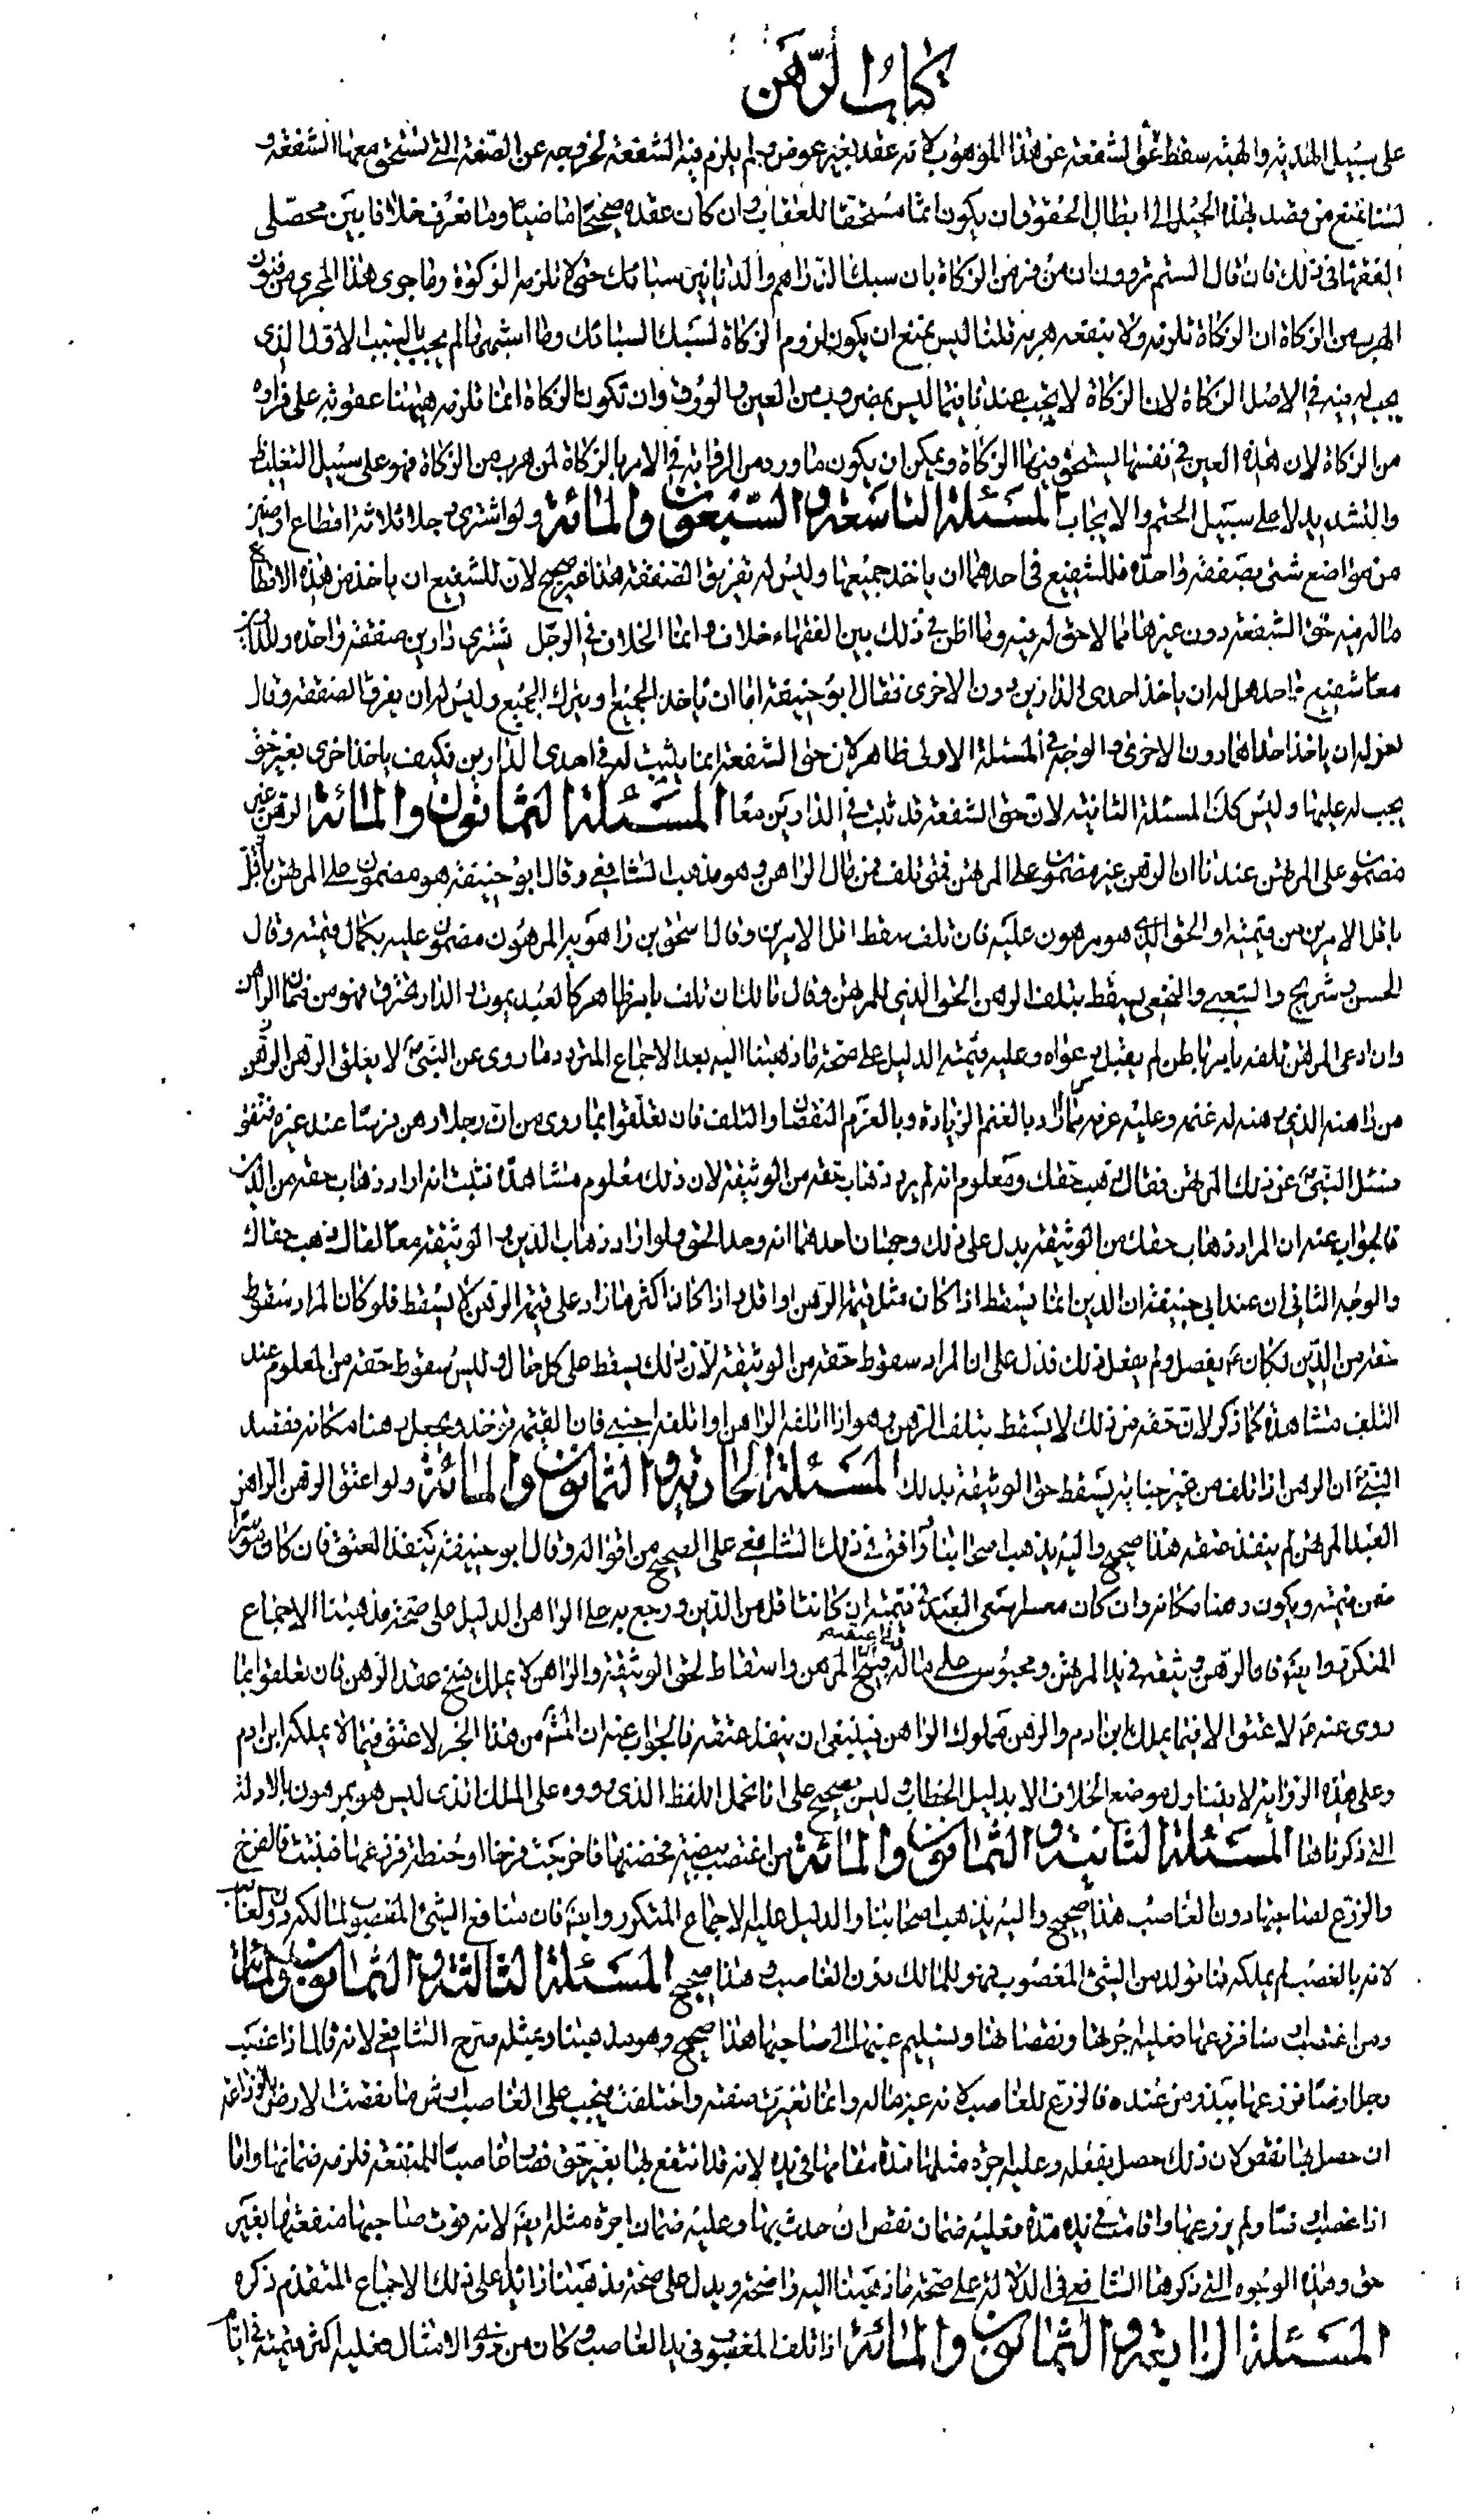 كتاب الرهن
على سبيل الهدية والهبة سقط حق الشفعة عن هذا الموهوب لانه عقد بغير عوض ولم يلزم فيه الشفعة لخروجه عن الصفة التي تستحق معها الشفعة و
لسنا نمنع من قصد بهذه الحيل الى ابطال الحقوق ان يكون اثما مستحقا للعقاب وان كان عقده صحيحا ماضيا وما نعرف خلافا بين محصلى
الفقهاء في ذلك فان قال الستم تروون ان من فر من الزكاة بان سبك الدراهم والدنانير سبائك حتى لا تلزمه الزكوة وما جرى هذا المجرى من فنون
الهرب من الزكاة ان الزكاة تلزمه ولا ينفعه هربه قلنا ليس يمتنع ان يكون لزوم الزكاة لسبك السبائك وما اشبهها لم يجب بالسبب الاول الذى
يجب له فيه في الاصل الزكاة لان الزكاة لا تجب عندنا فيما ليس بمضروب من العين والورق وان تكون الزكاة انما تلزمه هيهنا عقوبة على فراره
من الزكاة لان هذه العين في نفسها يستحق فيها الزكاة ويمكن ان يكون ما ورد من الرواية في الامر بالزكاة لمن هرب من الزكاة فهو على سبيل التغليظ
والتشديد لا على سبيل الحتم والايجاب المسئلة التاسعة والسبعون والمائة ولو اشترى رجلا ثلاثة اقطاع ارضين
من مواضع شتى بصفقة واحدة فللشفيع في احدهما ان ياخذ جميعها وليس له تفريق الصفقة هذا غير صحيح لان للشفيع ان ياخذ من هذه الاقطاع
ما له فيه حق الشفعة دون غيرها مما لا حق له فيه وما اظن في ذلك بين الفقهاء خلاف وانما الخلاف في الرجل يشترى دارين صفقة واحدة وللدارين
معا شفيع واحد هل له ان ياخذ احدى الدارين دون الاخرى فقال ابو حنيفة اما ان ياخذ الجميع او يترك الجميع وليس له ان يفرق الصفقة وقال
زفر له ان ياخذ احداهما دون الاخرى والوجه في المسئلة الاولى ظاهر لان حق الشفعة انما يثبت له في احدى الدارين فكيف ياخذ اخرى بغير حق
يجب له عليها وليس كك المسئلة الثانية لان حق الشفعة قد ثبت في الدارين معا المسئلة الثمانون والمائة الرهن غير
مضمون على المرتهن عندنا ان الرهن غير مضمون على المرتهن فمتى تلف فمن مال الراهن وهو مذهب الشافعي وقال ابو حنيفة هو مضمون على المرتهن باقل
باقل الامرين من قيمته او الحق الذي هو مرهون عليه فان تلف سقط اقل الامرين وقال اسحق بن راهويه المرهون مضمون عليه بكمال قيمته وقال
الحسن وشريح والشعبي والنخعى يسقط بتلف الرهن الحق الذي للمرتهن وقال مالك ان تلف بامر ظاهر كالعبد يموت والدار تحترق فهو من ضمان الراهن
وان ادعى المرتهن تلفه بامر باطن لم يقبل دعواه وعليه قيمته الدليل على صحة ما ذهبنا اليه بعد الاجماع المتردد ما روى عن النبى ص لا يغلق الرهن الرهن
من راهنه الذي رهنه له غنمه وعليه غرمه فاراد بالغنم الزيادة وبالغرم النقصان او التلف فان تعلقوا بما روى من ان رجلا رهن فرسا عند غيره فنفق
فسئل النبى ص عن ذلك المرتهن فقال ذهب حقك ومعلوم انه لم يرد ذهاب حقه من الوثيقة لان ذلك معلوم مشاهدة فثبت انه اراد ذهاب حقه من الدين
فالجواب عنه ان المراد ذهاب حقك من الوثيقة يدل على ذلك وجهان احدهما انه وحد الحق ولو اراد ذهاب الدين والوثيقة معا لقال ذهب حقاك
والوجه الثاني ان عند ابي حنيفة ان الدين انما يسقط اذا كان مثل قيمة الرهن او اقل واذا كان اكثر مما زاد على قيمة الرهن لا يسقط فلو كان المراد سقوط
حقه من الدين لكان ع يفصل ولم يفعل ذلك فدل على ان المراد سقوط حقه من الوثيقة لان ذلك يسقط على كل حال وليس سقوط حقه من المعلوم عند
التلف مشاهدة كما ذكر لان حقه من ذلك لا يسقط بتلف الرهن وهو اذا اتلفه الراهن او اتلفه اجنبي فان القيمة تؤخذ ويجعل رهنا مكانه فقصد
النبي ع ان الرهن اذا تلف من غير جناية يسقط حق الوثيقة بذلك المسئلة الحادية والثمانون والمائة ولو اعتق الرهن الراهن
العبد المرتهن لم ينفذ عتقه هذا صحيح واليه يذهب اصحابنا وافق في ذلك الشافعي على الصحيح من اقواله وقال ابو حنيفة ينفذ العتق فان كان موسرا
ضمن قيمته ويكون رهنا مكانه وان كان معسرا يستسعى العبد في قيمته ان كانت اقل من الدين ورجع به على الراهن الدليل على صحة مذهبنا الاجماع
المتكرر وايضا فالرهن وثيقة في يد المرتهن ومحبوس على ماله وفي عتقه فسخ الرهن واسقاط لحق الوثيقة والراهن لا يملك فسخ عقد الرهن فان تعلقوا بما
روى عنه ع لا عتق الا فيما يملك ابن ادم والرهن مملوك الراهن فينبغى ان ينفذ عتقه فالجواب عنه ان المتن من هذا الخبر لا عتق فيما لا يملكه ابن ادم
وعلى هذه الرواية لا يتناول موضع الخلاف الا بدليل الخطاب وليس بصحيح على انا نحمل اللفظ الذى رووه على الملك الذى ليس هو بمرهون بالادلة
التي ذكرناها المسئلة الثانية والثمانون والمائة من اغتصب بيضة فحضنها فاخرجت فرخا او حنطة فزرعها فنبتت فالفرخ
والزرع لصاحبها دون الغاصب هذا صحيح واليه يذهب اصحابنا والدليل عليه الاجماع المتكرر وايضا فان منافع الشئ المغصوب لمالكه دون الغاصب
لانه بالغصب لم يملكه فما تولد من الشئ المغصوب فهو للمالك دون الغاصب وهذا صحيح المسئلة الثالثة والثمانون والمائة
ومن اغتصب ارضا فزرعها فعليه اجرتها ونقصانها وتسليم عينها الى صاحبها هذا صحيح وهو مذهبنا وبمثله صرح الشافعي لانه قال اذا غصب
رجل ارضا فزرعها ببذر من عنده فالزرع للغاصب لانه عين ماله وانما تغيرت صفته واختلفت ويجب على الغاصب ارش ما نقصت الارض بالزراعة
ان حصل بها نقص لان ذلك حصل بفعله وعليه اجرة مثلها مدة مقامها في يده لانه قد انتفع بها بغير حق فصار غاصبا للمنفعة فلزمه ضمانها واما
اذا غصب ارضا ولم يزرعها واقامت في يده مدة فعليه ضمان نقص ان حدث بها وعليه ضمان اجرة مثله ايضا لانه فوت صاحبها منفعتها بغير
حق وهذه الوجوه التي ذكرها الشافعي في الدلالة على صحة ما ذهبنا اليه واضحة ويدل على صحة مذهبنا زائدا على ذلك الاجماع المتقدم ذكره
المسئلة الرابعة والثمانون والمائة اذا تلف المغصوب في يد الغاصب وكان من ذوى الامثال فعليه اكثر قيمته في ايام